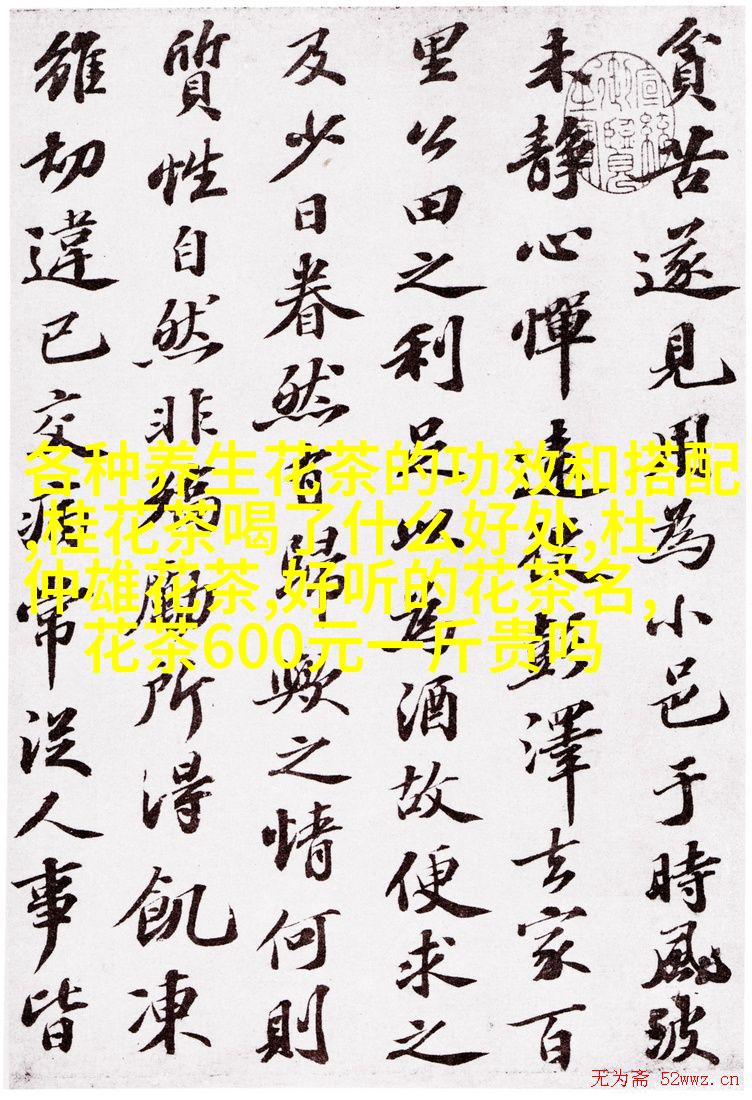 貧苦遂見用為小邑于時風波
未靜心憚遠役彭澤去家百
里公田之利足以為酒故便求之
及少日眷然有歸歟之情何則
質性自然非矯勵所得飢凍
雖切違己交病常從人事皆
各种养生花茶的功效和搭配
,桂花茶喝了什么好处,杜
仲雄花茶,好听的花茶名,
花茶600元一斤贵吗
无为斋 52wwz.cn